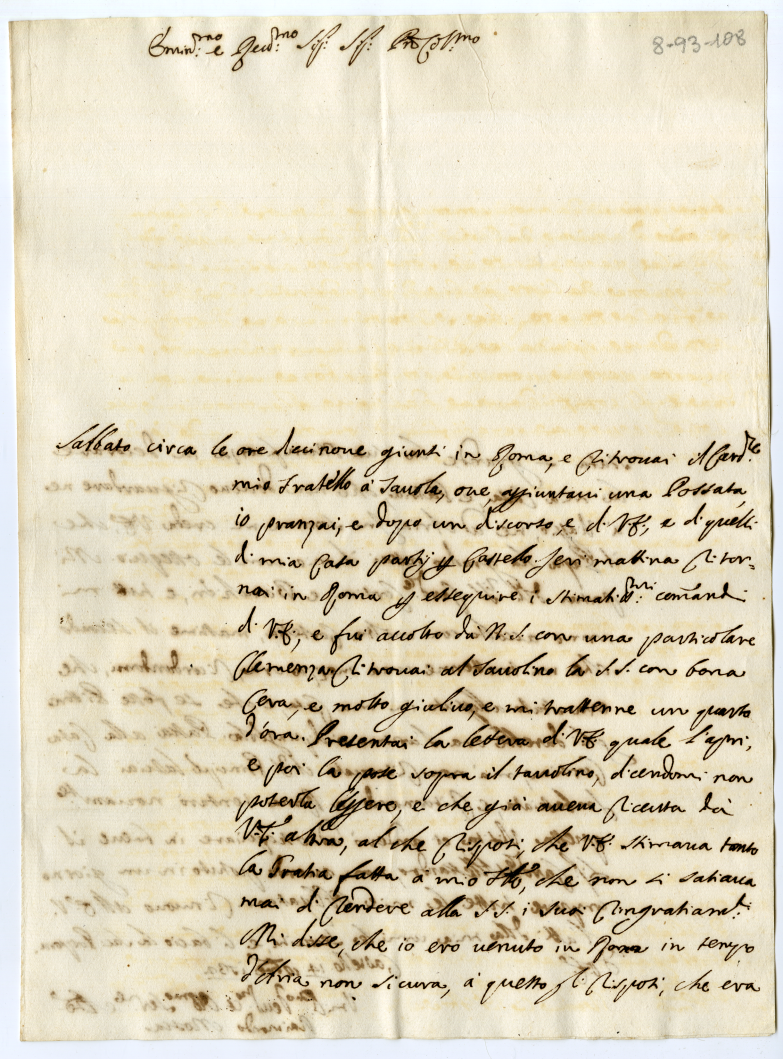 8-93-108
Emin.mo e Rev.mo Sig.r Sig.r P.ron Col.mo
Sabbato circa le ore diecinoue giunti in Roma, e ritrouai il Card.le
mio Fratello à Tauola, oue, aggiuntaui una Possata,
io pranzai, e dopo un discorso, e di V.E., e di quelli
di mia Casa partij p Castello. Jeri mattina ritor-
nai in Roma p essequire i stimatis.mi comandi
di V.E., e fui accolto da N.S. con una particolare
Clemenza. Ritrouai al Tauolino la S.S. con bona
Cera, e molto giuliuo, e mi trattenne un quarto
d'ora. Presentai la lettera di V.E. quale l'aprì,
e poi la pose sopra il tauolino, dicendomi non
poterla leggere, e che già aueua riceuta da
V.E. altra, al che risposi, che V.E. stimaua tanto
la Gratia fatta à mio Fr̃llo, che non si satiaua
mai di rendere alla S.S. i suoi ringratiam.ti
Mi disse, che io ero uenuto in Roma in tempo
d'Aria non sicura, à questo gli risposi, che era